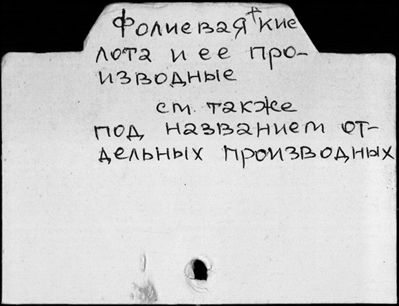 Фолиевая кис
лота и ее про-
изводные
см. также
под названием от-
дельных производных